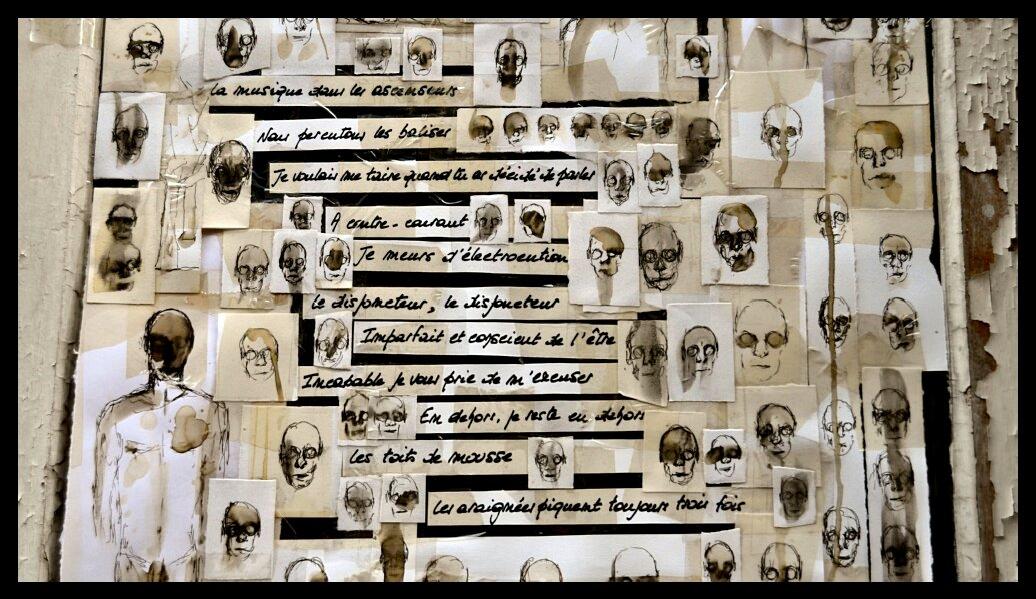 La musique dans les ascenseurs
Nous percutons les balises
Je voulais me taire quand tu as décidé de parler
A contre-courant
Je meurs d'électrocution
Le disjoncteur, le disjoncteur
Imparfait et conscient de l'être
Incapable je vous prie de m'excuser
En dehors, je reste en dehors
Les toits de mousse
Les araignées piquent toujours trois fois